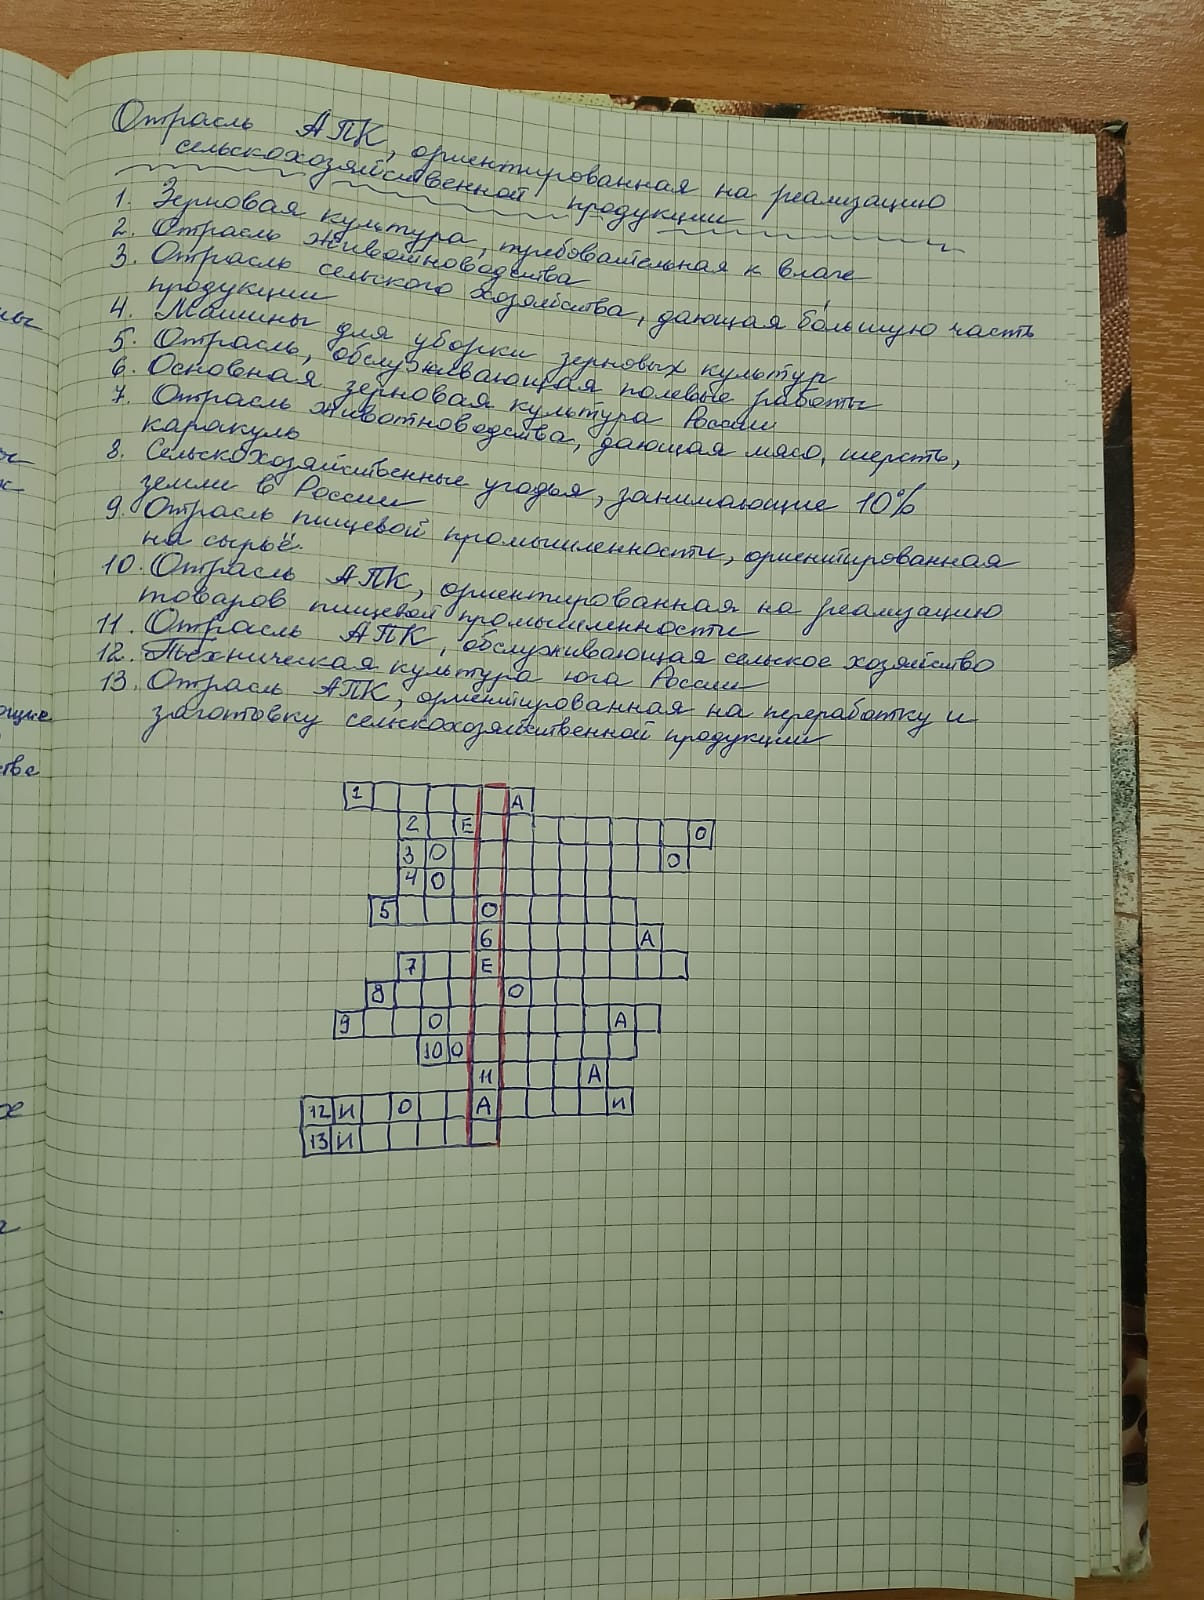 Отрасль АПК, ориентированная на реализацию
сельскохозяйственной продукции
1. Зерновая культура, требовательная к влаге
2. Отрасль животноводства
3. Отрасль сельского хозяйства, дающая бо́льшую часть
продукции
4. Машины для уборки зерновых культур
5. Отрасль, обслуживающая полевые работы
6. Основная зерновая культура России
7. Отрасль животноводства, дающая мясо, шерсть,
каракуль
8. Сельскохозяйственные угодья, занимающие 10%
земли в России
9. Отрасль пищевой промышленности, ориентированная
на сырьё.
10. Отрасль АПК, ориентированная на реализацию
товаров пищевой промышленности
11. Отрасль АПК, обслуживающая сельское хозяйство
12. Техническая культура юга России
13. Отрасль АПК, ориентированная на переработку и
заготовку сельскохозяйственной продукции
1 А
2 Е О
3 О О
4 О
5 О
6 А
7 Е
8 О
9 О А
10 О
11 А
12 И О А И
13 И